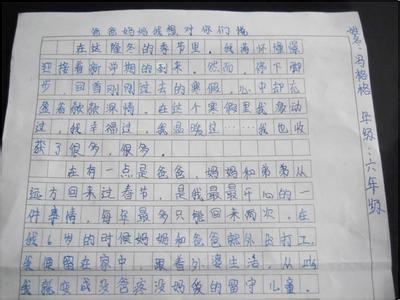 爸爸妈妈我想对你们说
姓名:冯格格 年级:六年级
在这隆冬的季节里,我满怀憧憬
迎接着新学期的到来。然而,停下脚
步,回首刚刚过去的寒假,心中却充
盈着款款深情。在这个寒假里我感动
过,我幸福过,我品尝过……我也收
获了很多,很多。
在有一点是爸爸,妈妈和弟弟从
远方回来过春节,是我最最开心的一
件事情,每年最多只能回来两次,在
我6岁的时候妈妈和爸爸就外出打工,
我便留在家中,跟着外婆生活,从此
我就变成没爸疼没妈爱的留守儿童。